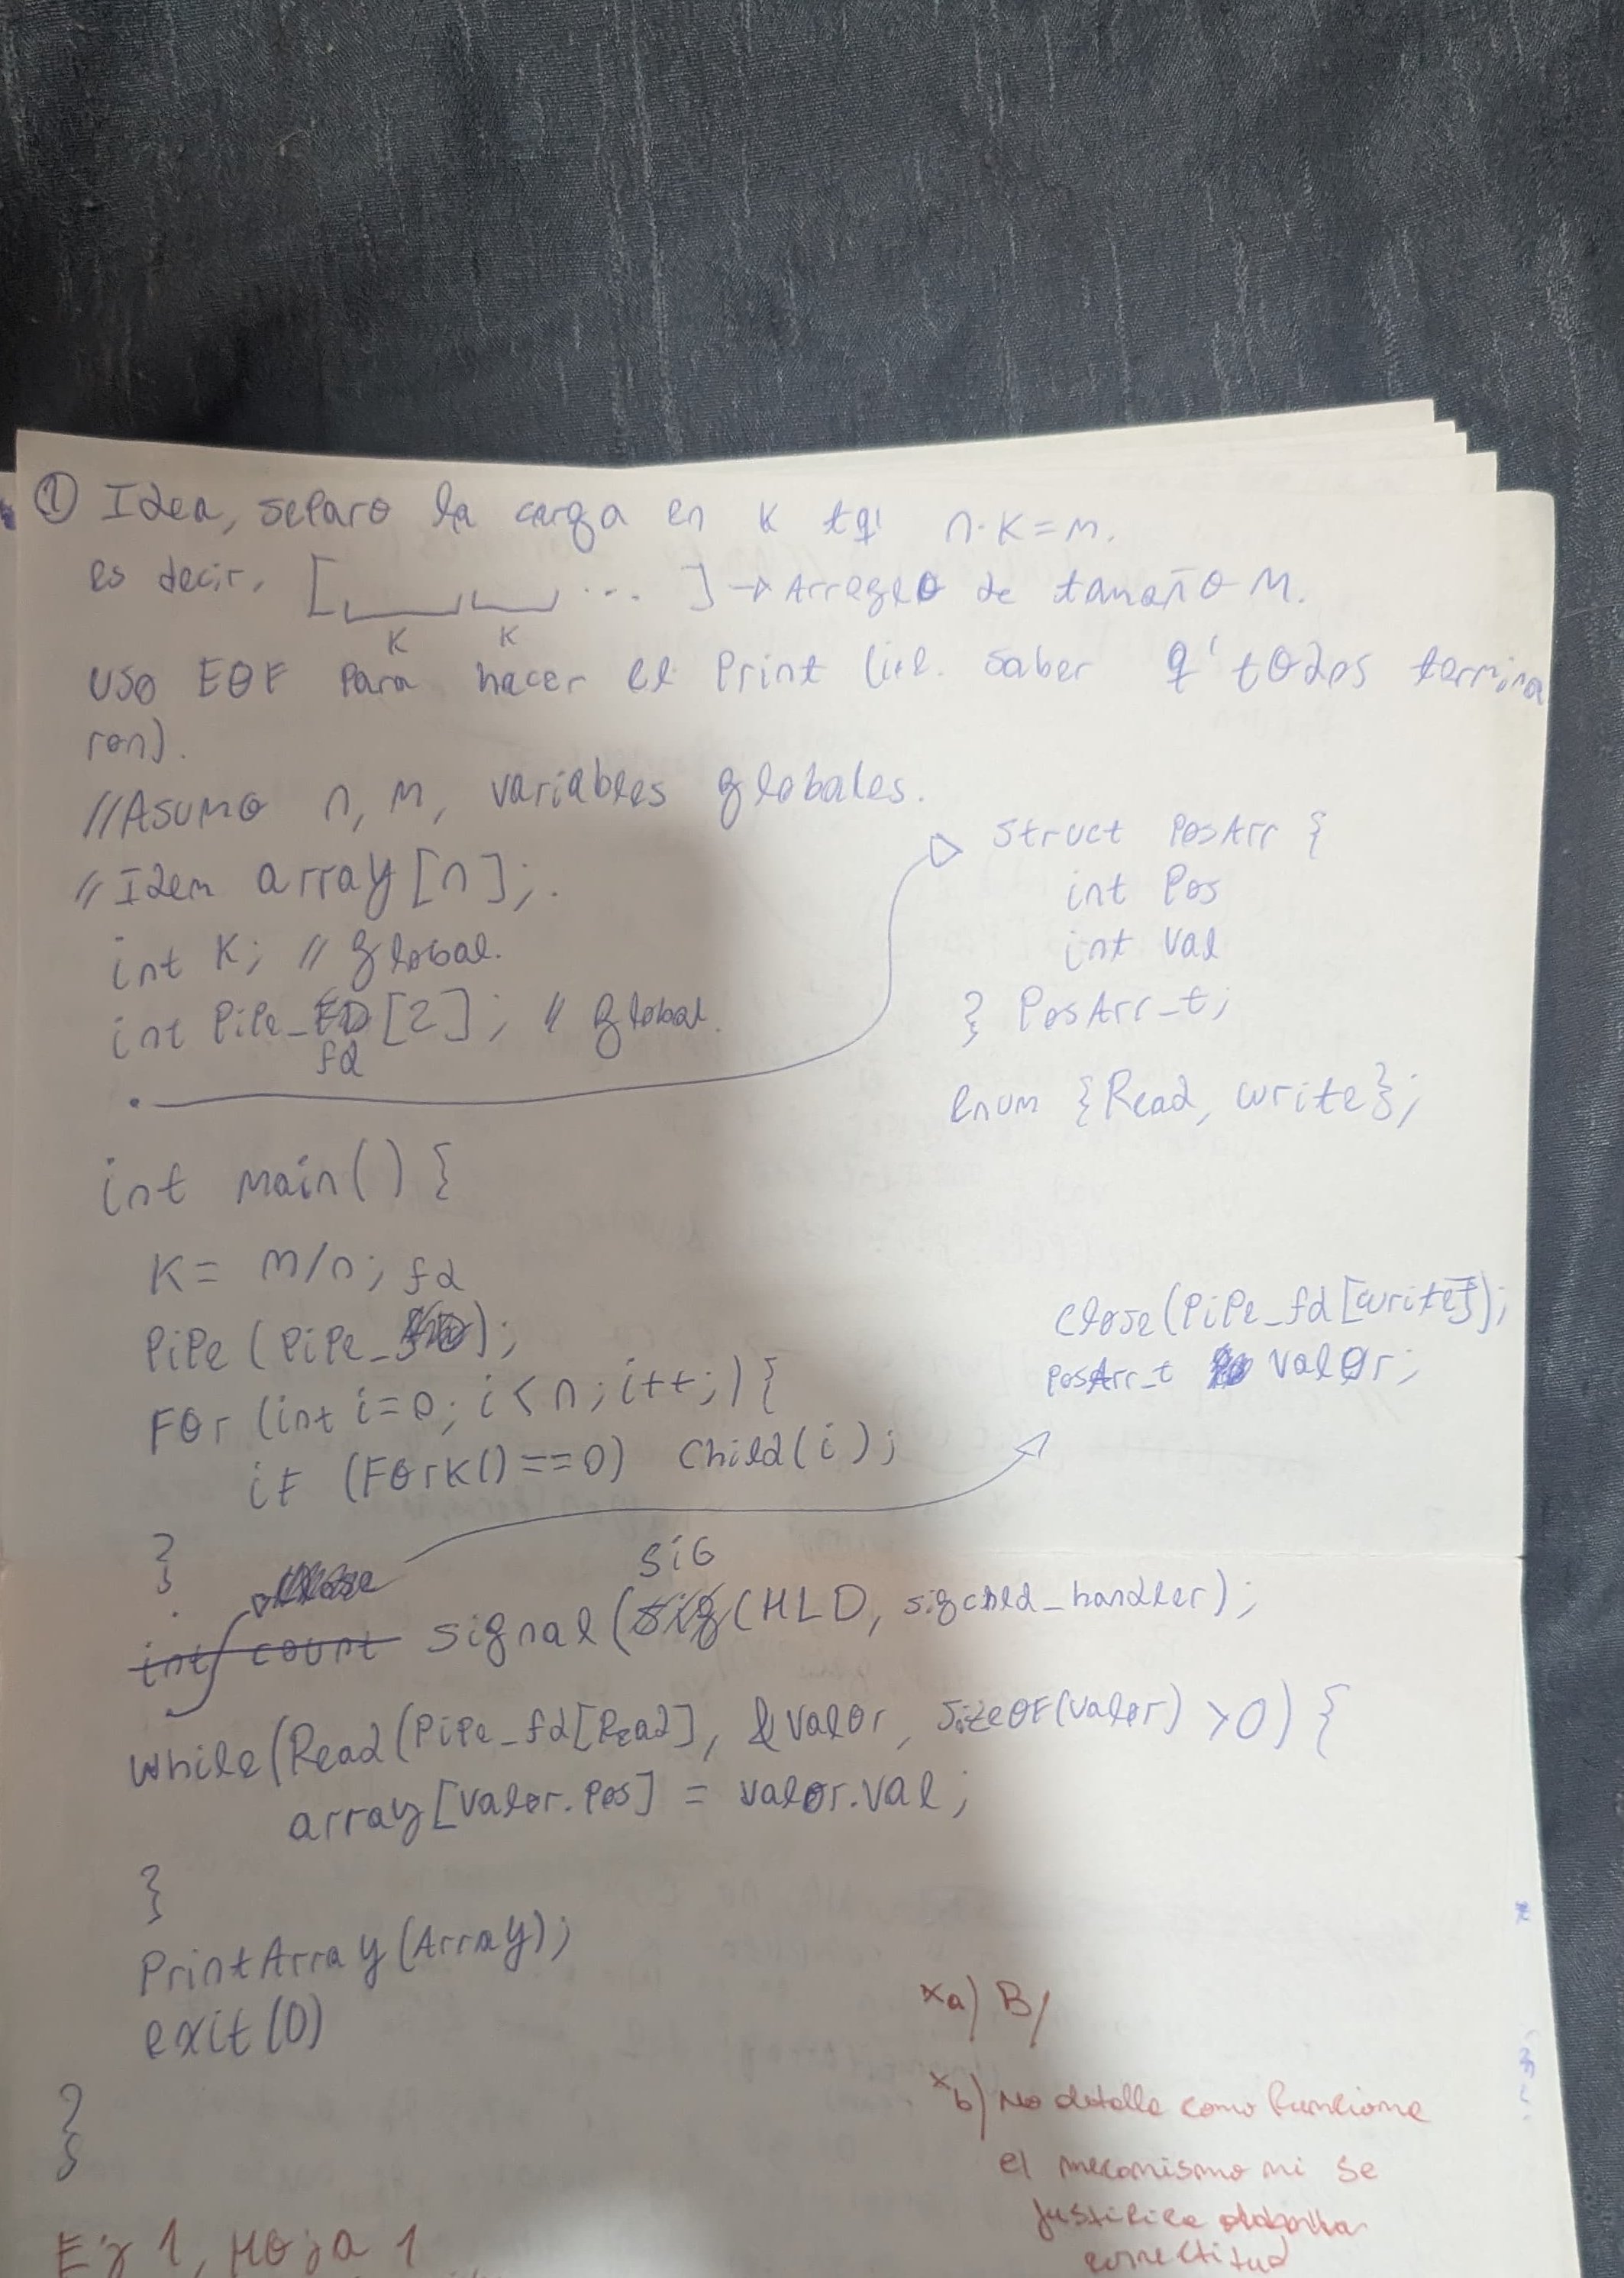 ① Idea, separo la carga en K tq' n·K=M.
es decir, [ K K ... ] → Arreglo de tamaño M.
USO EOF Para hacer el Print (i.e. saber q' todos termina
ron).
//Asumo n, M, variables globales.
// Idem array[n];.
int K; // global.
int Pipe_fd[2]; // global.
struct PosArr {
int Pos
int Val
} PosArr_t;
enum {Read, write};
int main() {
K = M/n;
Pipe(Pipe_fd);
For (int i=0; i<n; i++;) {
if (Fork()==0) Child(i);
}
close(Pipe_fd[write]);
PosArr_t valor;
int count signal(SIGCHLD, sigchld_handler);
while(Read(Pipe_fd[Read], &valor, sizeOF(valor) >0) {
array[valor.Pos] = valor.val;
}
PrintArray(Array);
exit(0)
}
xa) B/
xb) No detalla como funciona
el mecanismo ni se
justifica
correctitud
Ej 1, Hoja 1